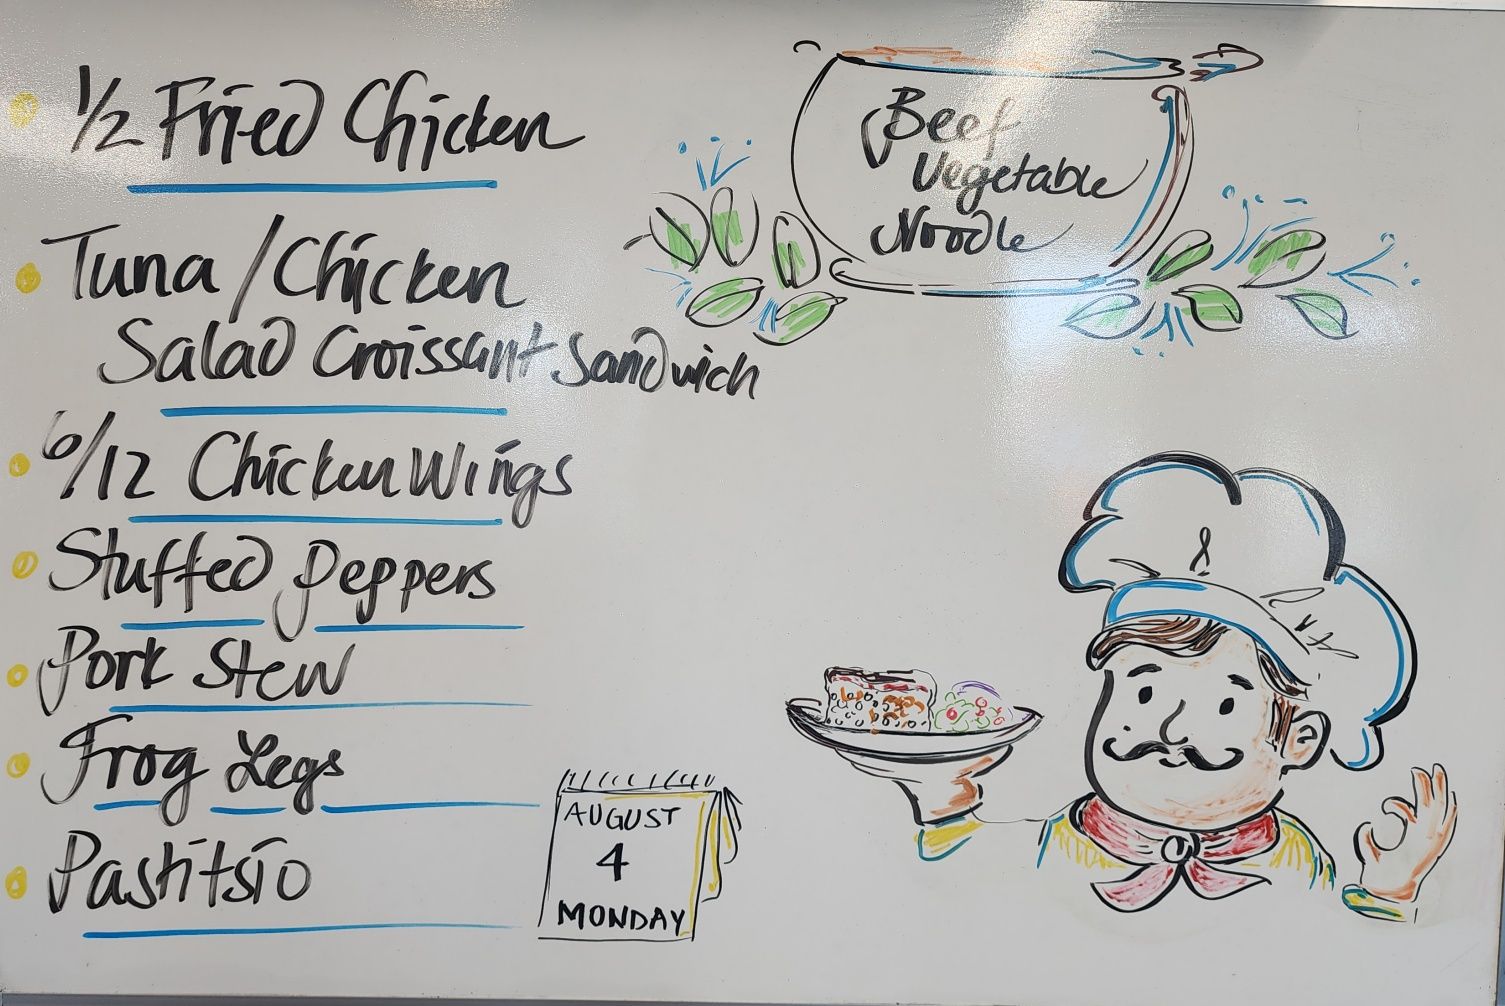 1/2 Fried Chicken
Tuna / Chicken
Salad Croissant Sandwich
6/12 Chicken Wings
Stuffed Peppers
Pork Stew
Frog Legs
Pastitsio
Beef
Vegetable
Noodle
AUGUST
4
MONDAY